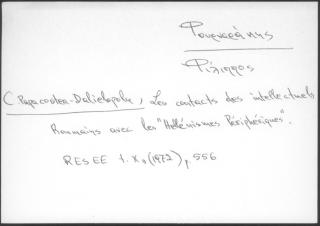 Φουρναράκης
Φίλιππος
C. Papacostea-Danielopolu, Les contacts des intellectuels
Roumains avec les "Hellénismes Périphériques".
RESEE t. X, (1972), p. 556